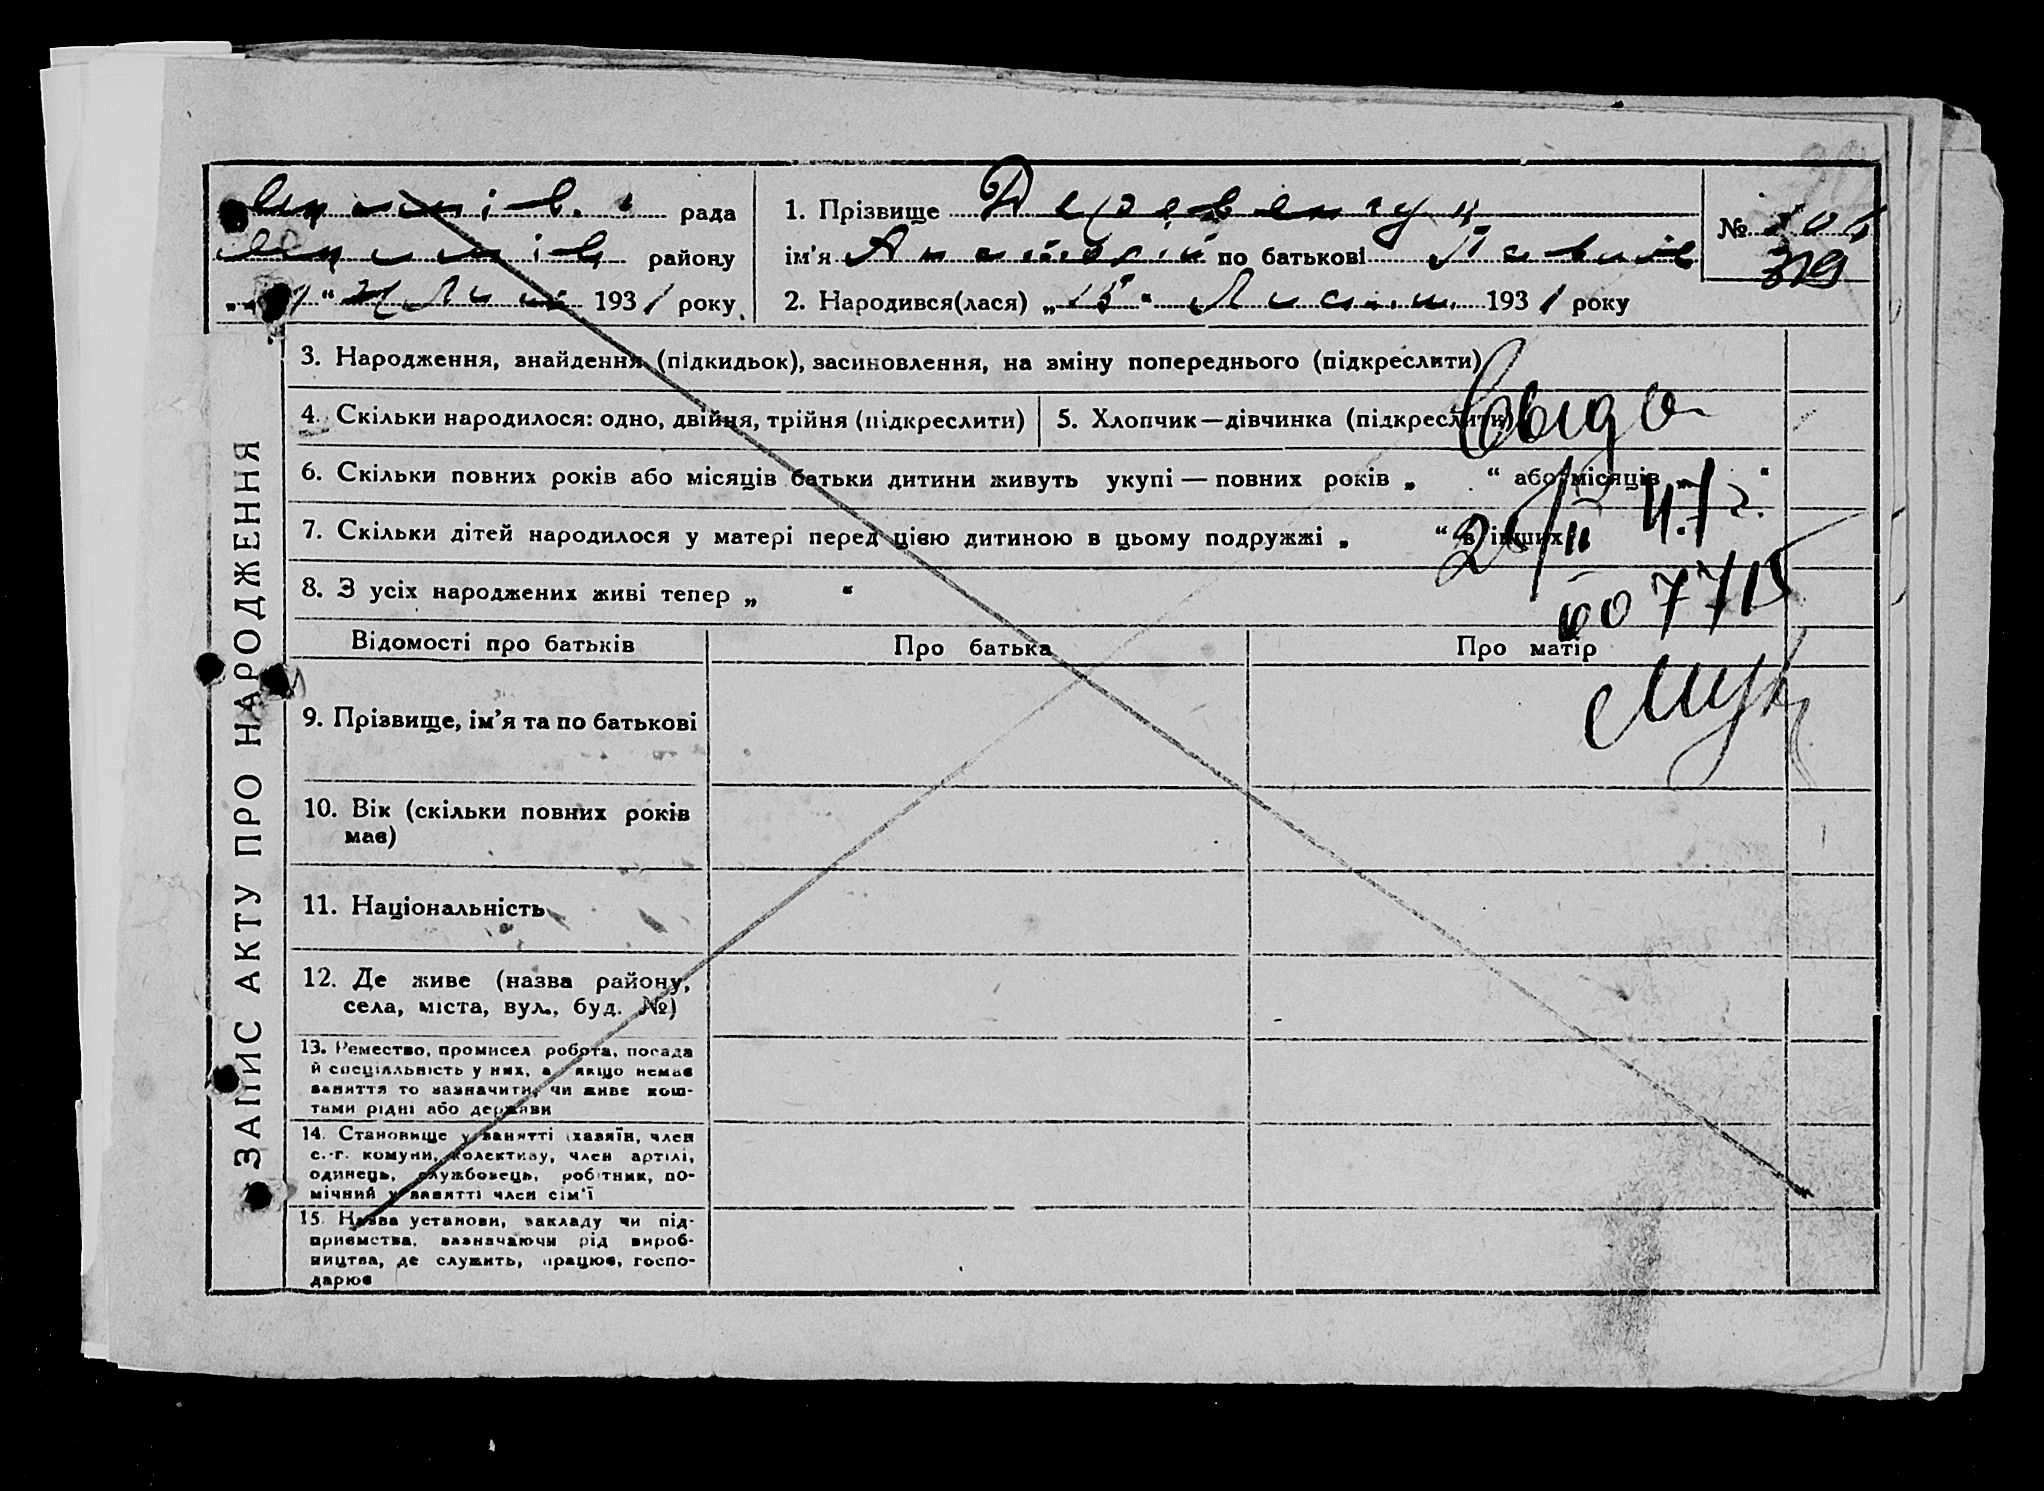 рада
району
193 1 року
1. Прізвище Деревенчук
ім'я Анатолій по батькові
2. Народився(лася) „ 15 “ 193 1 року
№
319
ЗАПИС АКТУ ПРО НАРОДЖЕННЯ
3. Народження, знайдення (підкидьок), засиновлення, на зміну попереднього (підкреслити)
4. Скільки народилося: одно, двійня, трійня (підкреслити)
5. Хлопчик—дівчинка (підкреслити)
6. Скільки повних років або місяців батьки дитини живуть укупі — повних років „ “ або місяців „ “
7. Скільки дітей народилося у матері перед цією дитиною в цьому подружжі „ “ в інших
8. З усіх народжених живі тепер „ “
47 г.
Відомості про батьків
Про батька
Про матір
9. Прізвище, ім'я та по батькові
10. Вік (скільки повних років
має)
11. Національність
12. Де живе (назва району,
села, міста, вул., буд. №)
13. Ремество, промисел, робота, посада
й спеціяльність у них, а якщо немає
заняття то зазначити, чи живе кош-
тами рідні або держави
14. Становище у занятті (хазяїн, член
с.-г. комуни, колективу, член артілі,
одинець, службовець, робітник, по-
мічний у занятті член сім'ї
15. Назва установи, закладу чи під-
приємства, зазначаючи рід вироб-
ництва, де служить, працює, госпо-
дарює